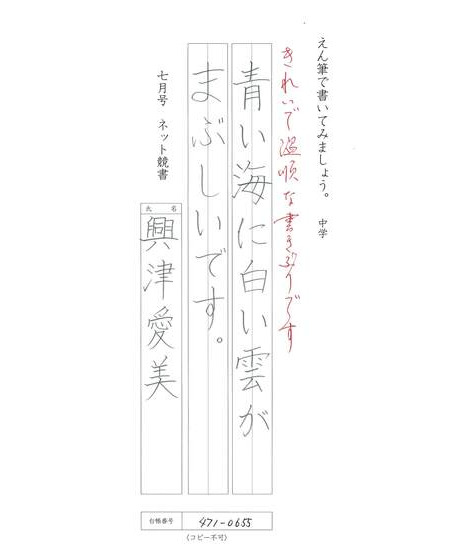 えん筆で書いてみましょう。 中学
きれいで温順な書きぶりです
青い海に白い雲が
まぶしいです。
七月号 ネット競書
氏名
興津愛美
台帳番号 471-0655
(コピー不可)